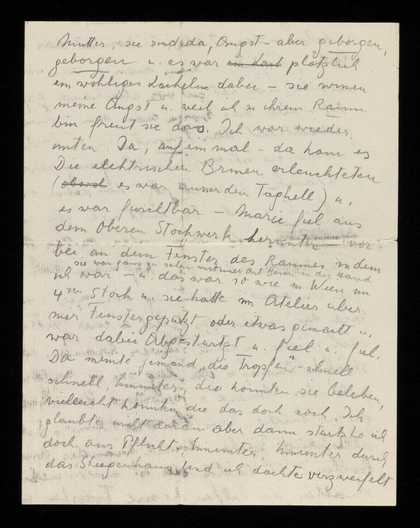 Mutter, sie sind da, Angst – aber geborgen,
geborgen u. es war plötzlich
ein wohliges Lächeln dabei – sie wissen
meine Angst u. weil ich in ihrem Raum
bin freut sie das. Ich war wieder
unten. Da, auf einmal – da kam es
Die elektrischen Birnen erleuchteten
(obwohl es war ausserdem Taghell) u.
es war furchtbar – Marie fiel aus
dem Oberen Stockwerk herunter vor-
bei an dem Fenster des Raumes in dem
sie war ganz in einer Art in der Hand
ich war – u. das war so wie in Wien im
4ten Stock u. sie hatte im Atelier über
mir Fenster geputzt oder etwas gemacht u.
war dabei Abgestürzt u. fiel u. fiel.
Da meinte jemand, die Tropfen – schnell
schnell hinunter, die könnten sie beleben,
vielleicht könnten die das doch noch. Ich
glaubte nicht daran aber dann stürzte ich
doch aus Pflicht hinunter, hinunter durch
das Stiegenhaus. Und ich dachte verzweifelt